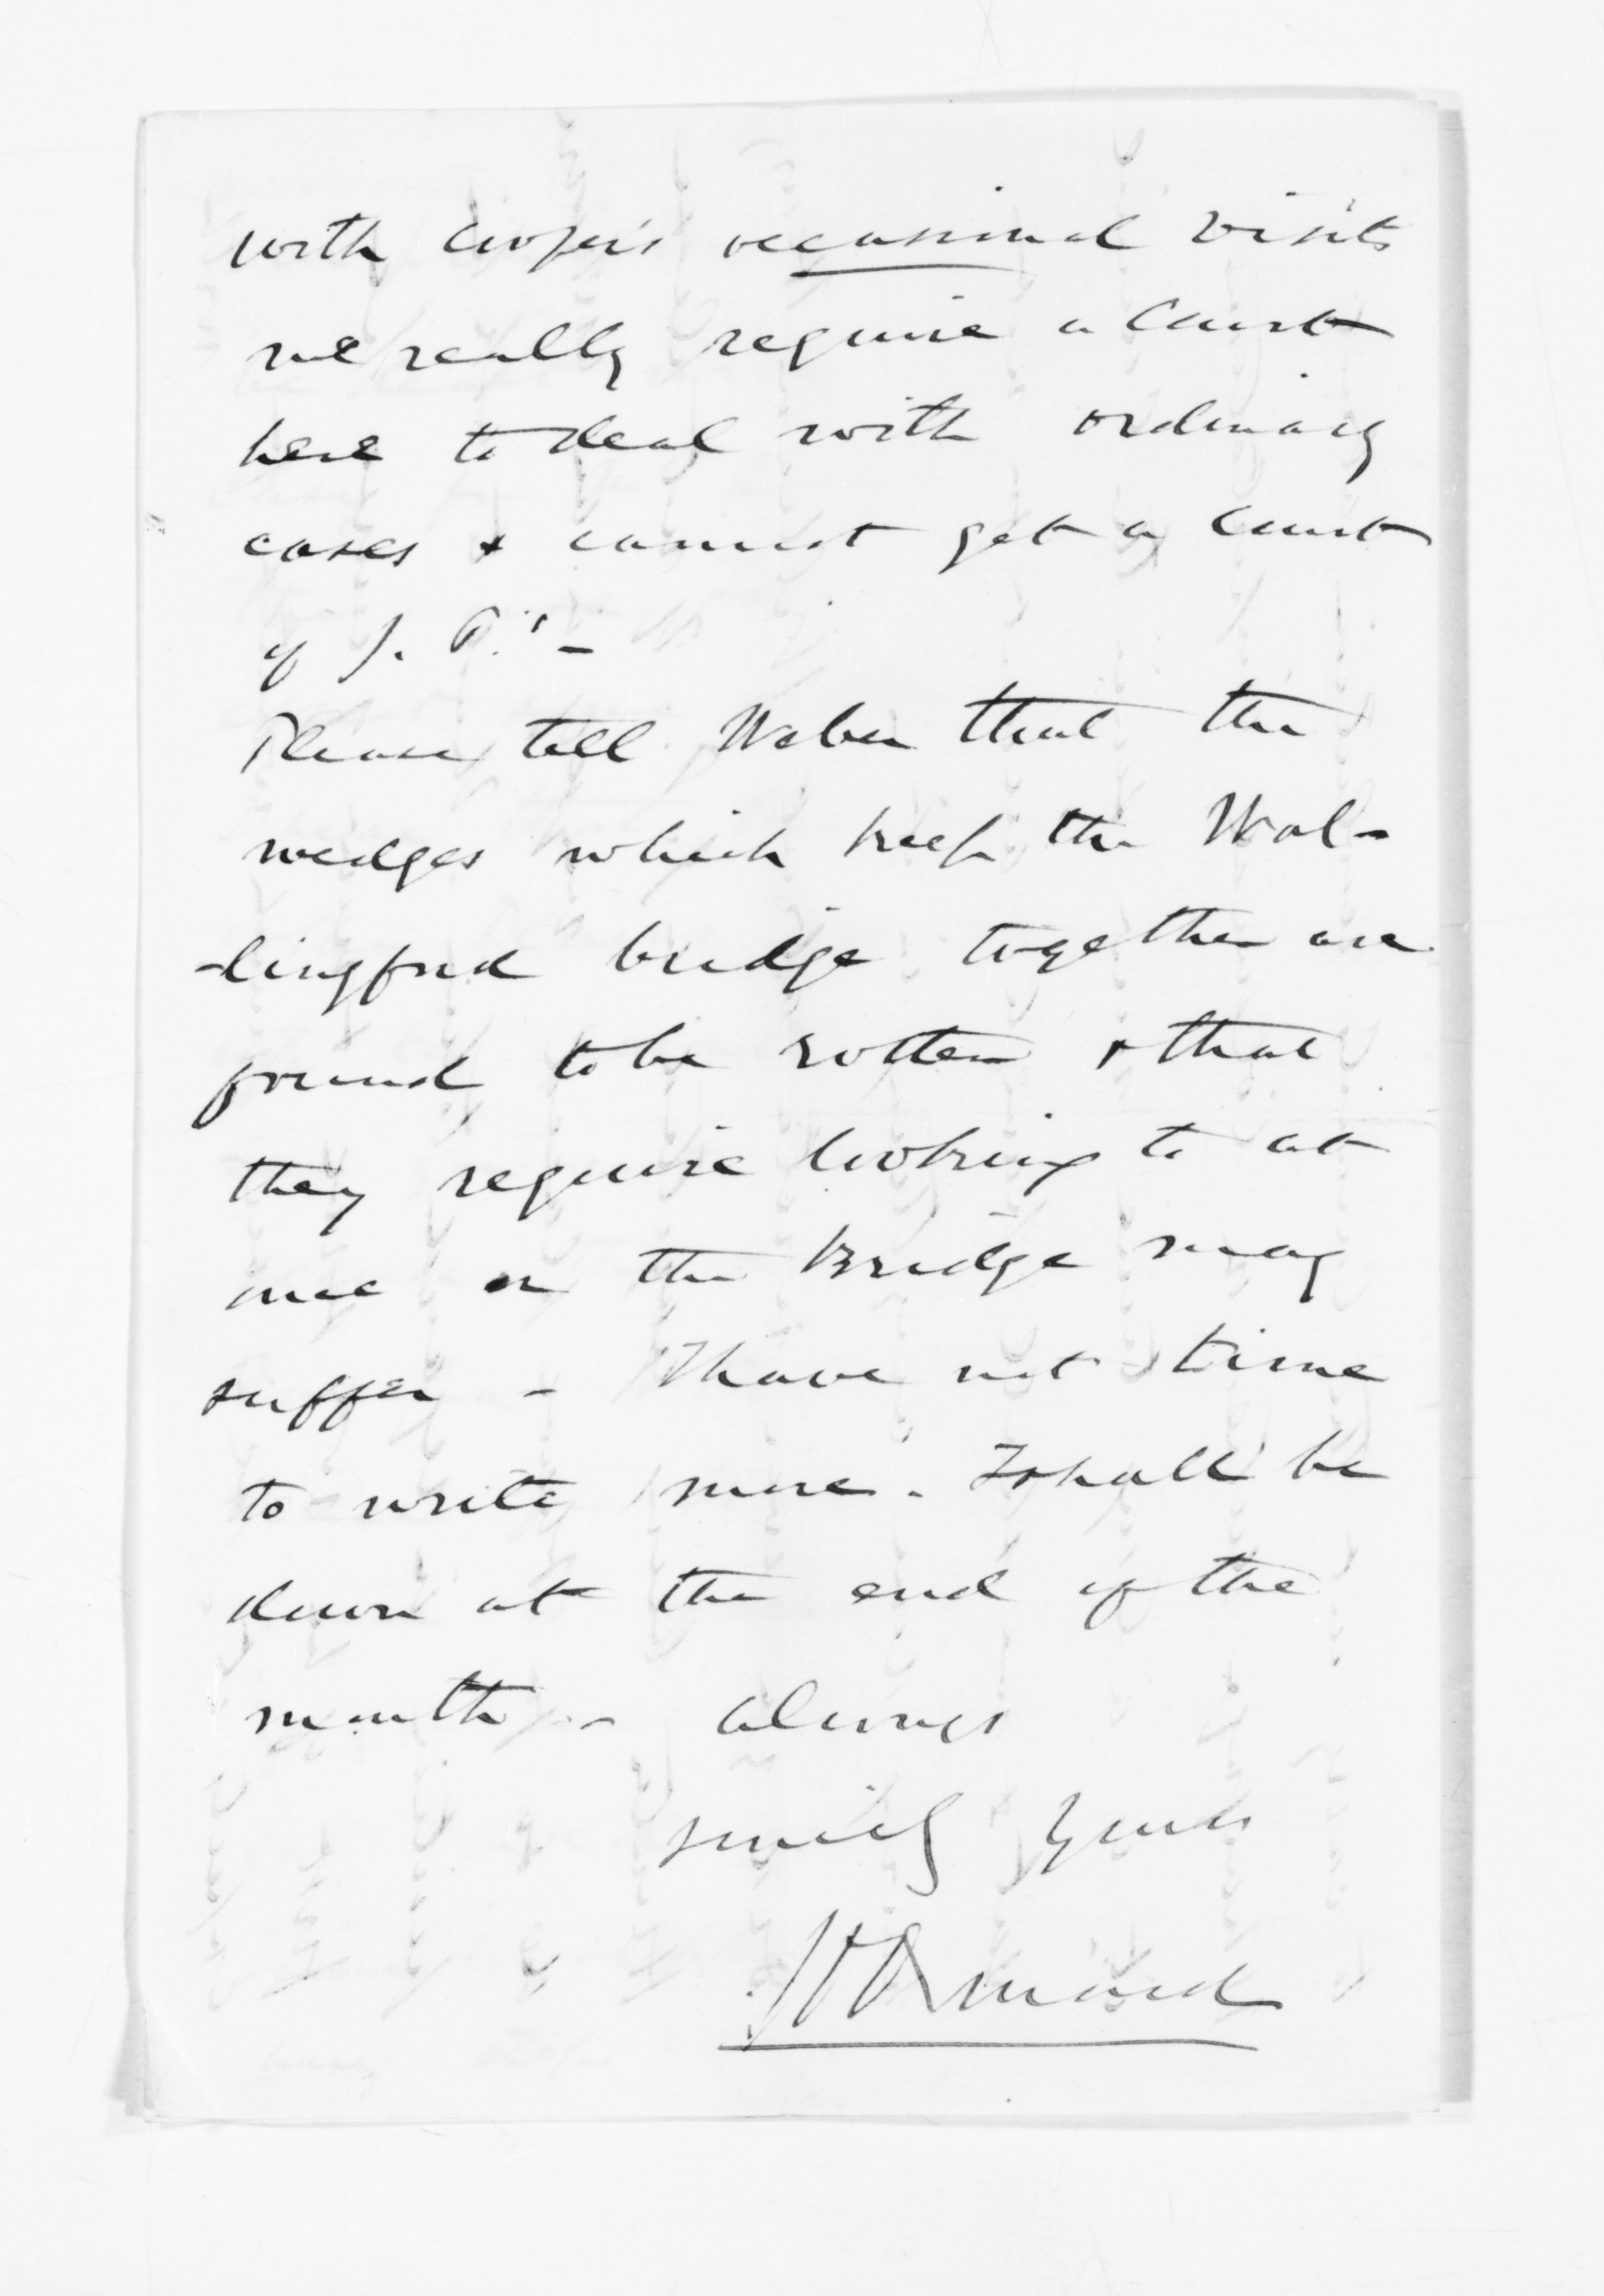 with Cooper's occasional visits
we really require a Court
here to deal with ordinary
cases & cannot get a Court
of J. P.'s -
Please tell Weber that the
wedges which keep the Wal-
-lingford bridge together are
found to be rotten & that
they require looking to at
once or the Bridge may
suffer - I have not time
to write more. I shall be
down at the end of the
month - always
sincely yours
JDOrmond